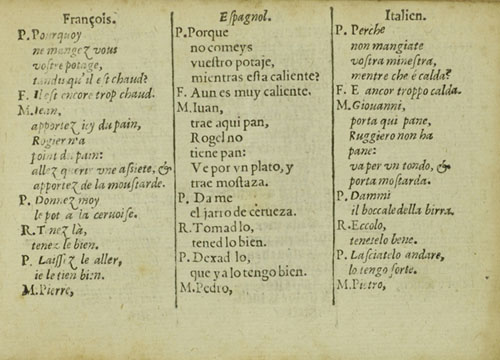 François.
P. Pourquoy
ne mangez vous
vostre potage,
tandis qu'il est chaud?
F. Il est encore trop chaud.
M. Iean,
apportez icy du pain,
Rogier n'a
point du pain:
allez querir vne assiete, &
apportez de la moustarde.
P. Donnez moy
le pot a la ceruoise.
R. Tenez là,
tenez le bien.
P. Laissez le aller,
ie le tien bien.
M. Pierre,
Espagnol.
P. Porque
no comeys
vuestro potaje,
mientras esta caliente?
F. Aun es muy caliente.
M. Iuan,
trae aqui pan,
Rogel no
tiene pan:
Ve por vn plato, y
trae mostaza.
P. Da me
el jarro de cerueza.
R. Tomad lo,
tened lo bien.
P. Dexad lo,
que ya lo tengo bien.
M. Pedro,
Italien.
P. Perche
non mangiate
vostra minestra,
mentre che é calda?
F. E ancor troppo calda.
M. Giouanni,
porta qui pane,
Ruggiero non ha
pane:
va per vn tondo, &
porta mostarda.
P. Dammi
il boccale della birra.
R. Eccolo,
tenetelo bene.
P. Lasciatelo andare,
lo tengo forte.
M. Pietro,